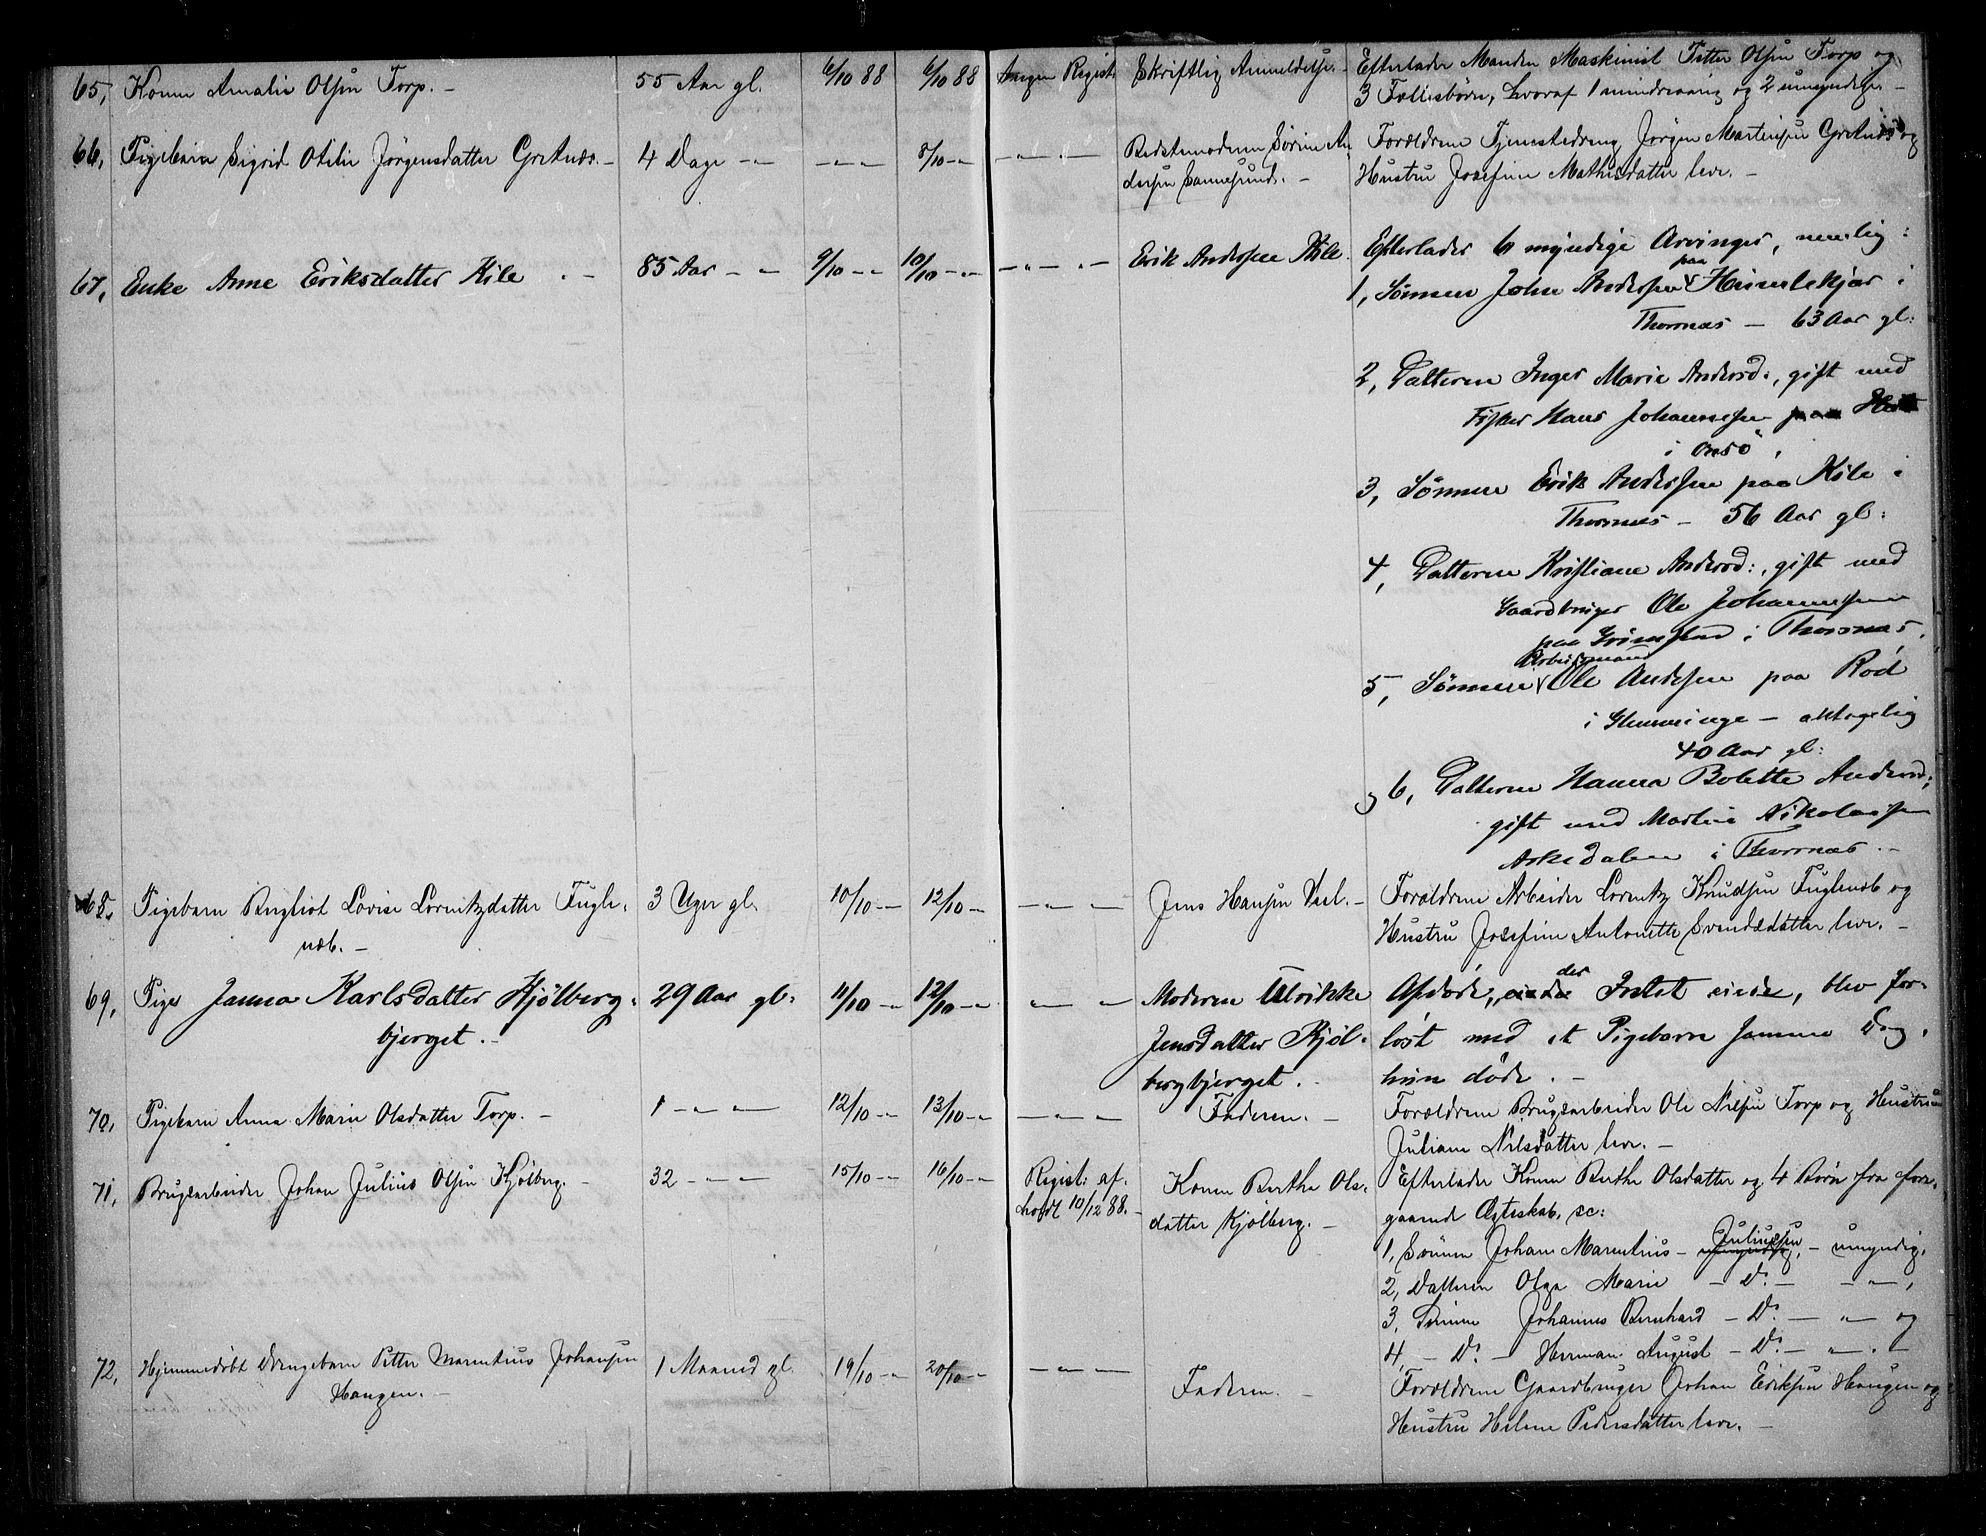 65, Konen Amalie Olsen Torp. — 55 Aar gl. 6/10 88 6/10 88 Ingen Regist. Skriftlig Anmeldelse. — Efterlader Manden Maskinist Petter Olsen Torp og
3 Fællesbørn, hvoraf 1 mindreaarig og 2 umyndige. —
66, Pigebarn Sigrid Otilie Jörgensdatter Gretnæs. — 4 Dage — " — " — 8/10 — " — " — Bedstemoderen Sörine An-
dersen Sannesund. — Forældrene Tjenestedreng Jörgen Martinsen Gretnæs og
Hustru Josefine Mathisdatter leve. —
67, Enke Anne Eriksdatter Kile. — 85 Aar — " 9/10 — " 10/10 — " — " — " — Erik Andersen Kile. Efterlader 6 myndige Arvinger, nemlig:
paa
1, Sønnen John Andersen Himlekjær i
Thorsnæs — 63 Aar gl:
2, Datteren Inger Marie Andersd:, gift med
Fisker Hans Johannessen paa
i Onsö,
3, Sønnen Erik Andersen paa Kile i
Thorsnæs — 56 Aar gl:
4, Datteren Kristiane Andersd:, gift med
Gaardbruger Ole Johannessen
paa Grimstad i Thorsnæs,
Arbeidsmand
5, Sønnen Ole Andersen paa Röd
i Glemminge — antagelig
40 Aar gl:
og 6, Datteren Hanna Bolette Andersd:,
gift med Martin Nikolaisen
Askedalen i Thorsnæs. —
68, Pigebarn Bergliot Lovise Lorentzdatter Fugle-
næb. — 3 Uger gl. 10/10 — " 12/10 — " — " — Jens Hansen Dal. — Forældrene Arbeider Lorentz Knudsen Fuglenæb og
Hustru Josefine Antonette Svendsdatter leve. —
69, Pige Janna Karlsdatter Kjölberg-
bjerget. — 29 Aar gl: 11/10 — " 12/10 — " — " — Moderen Ulrikke
Jensdatter Kjöl-
bergbjerget. Afdöde, der Intet eiede, blev for-
löst med et Pigebarn samme Dag,
hun döde. —
70, Pigebarn Anna Marie Olsdatter Torp. — 1 — " — 12/10 — " 13/10 — " — " — Faderen. — Forældrene Brugsarbeider Ole Nilsen Torp og Hustru
Juliane Nilsdatter leve. —
71, Brugsarbeider Johan Julius Olsen Kjölberg. — 32 — " — 15/10 — " 16/10 — " Regist: af-
holdt 10/12 88. — Konen Berthe Ols-
datter Kjölberg. — Efterlader Konen Berthe Olsdatter og 4 Börn fra fore-
gaaende Ægteskab, sc:
Juliussen
1, Sönnen Johan Marentius — umyndig, — umyndig,
2, Datteren Olga Marie — Do — — " —,
3, Sönnen Johannes Bernhard — Do — " — og
4, — Do — Herman August — Do — " —. —
72, Hjemmedöbt Drengebarn Petter Marentius Johansen
Haugen. — 1 Maaned gl. 19/10 — " 20/10 — " — " — Faderen. — Forældrene Gaardbruger Johan Eriksen Haugen og
Hustru Helene Pedersdatter leve. —